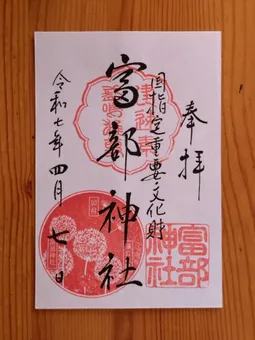 奉拝
国指定重要文化財
富部神社
令和七年四月七日
富部
神社